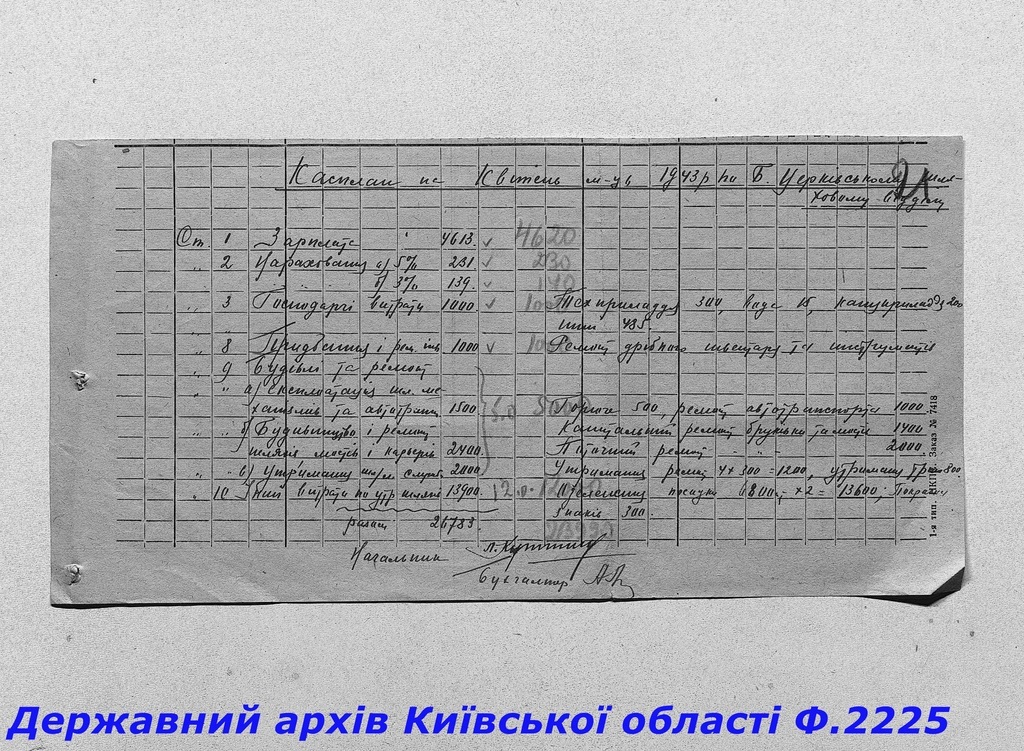 21
Касплан на Квітень м-ць 1943 р по Б. Церквіському шля-
ховому відділу
Ст. 1 Зарплата 4613. 4620
" 2 Нарахования а) 5% 231. 230
б) 3% 139. 140
" 3 Господарчі витрати 1000 Тех приладдя 300, вода 15, канцприладдя 200
инші 485.
" 8 Придбання і рем. інв 1000 Ремонт дрібного інвентару та инструментів
" 9 Будівлі та ремонт
" а) експлоатація шл. ме-
ханізмів та автотранс 1500 Горюче 500, ремонт автотранспорта 1000
" " б) Будивництво і ремонт Капітальний ремонт бруківки та мостів 1400
шляхів мостів і карьерів 2400 Поточний ремонт - " - " - 2000
" " в) Утримання шл. служб. 2000 Утримання 4 х 300 - 1200, утримання 800
" 10 Инші витрати по утр шляхів 13900 Озеленення посадки 6800 х 2 = 13600;
знаків 300.
разом 26783.
Начальник
бухгалтер
1-я тип. Заказ № 7418
Державний архів Київської області Ф.2225